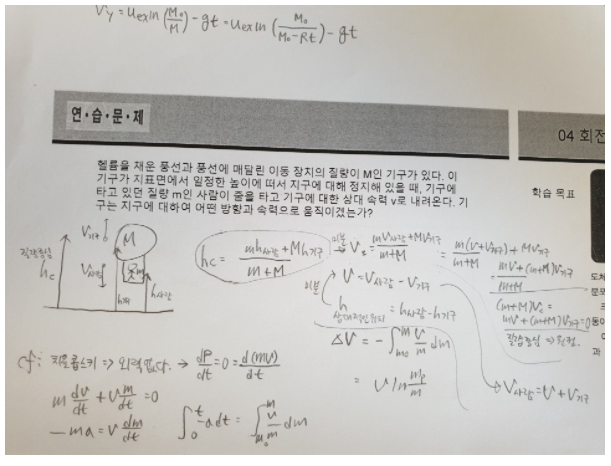 Vy = Uex ln(M₀/M) - gt = Uex ln(M₀/(M₀-Rt)) - gt
연·습·문·제
04 회전
헬륨을 채운 풍선과 풍선에 매달린 이동 장치의 질량이 M인 기구가 있다. 이
기구가 지표면에서 일정한 높이에 떠서 지구에 대해 정지해 있을 때, 기구에
타고 있던 질량 m인 사람이 줄을 타고 기구에 대한 상대 속력 v로 내려온다. 기
구는 지구에 대하여 어떤 방향과 속력으로 움직이겠는가?
학습 목표
질량중심
hc
V기구
M
V사람
m
h기구
h사람
hc = (mh사람+Mh기구)/(m+M)
미분 Vc = (mV사람+MV기구)/(m+M) = (m(V+V기구)+MV기구)/(m+M)
= (mV+(m+M)V기구)/(m+M)
미분 V = V사람-V기구
h상대적인위치 = h사람-h기구
(m+M)Vc =
mV+(m+M)V기구=0
질량중심 ⇒ 원점.
V사람=V+V기구
ΔV = -∫m₀→m V/m dm
= V ln m₀/m
cf: 치올콥스키 ⇒ 외력 없다. → dP/dt=0=d(mV)/dt
m dv/dt + V m/dt = 0
-ma = V dm/dt
∫0→t -adt = ∫m₀→m V/m dm
도차
문포
동이
과